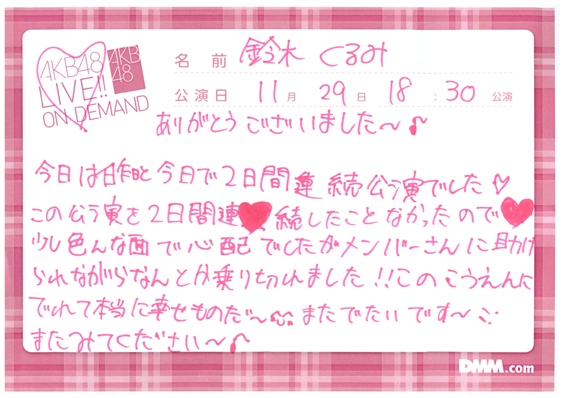 AKB48
LIVE!!
ON DEMAND
AKB
48
名 前 鈴木 くるみ
公演日 11月 29日 18:30 公演
ありがとうございました〜♪
今日は昨日と今日で2日間連続公演でした♡
この公演を2日間連♥続したことなかったので♥
少し色んな面で心配でしたがメンバーさんに助け
られながらなんとか乗り切れました!!このこうえんに
でれて本当に幸せものだ〜 またでたいです〜
またみてください〜♪
DMM.com